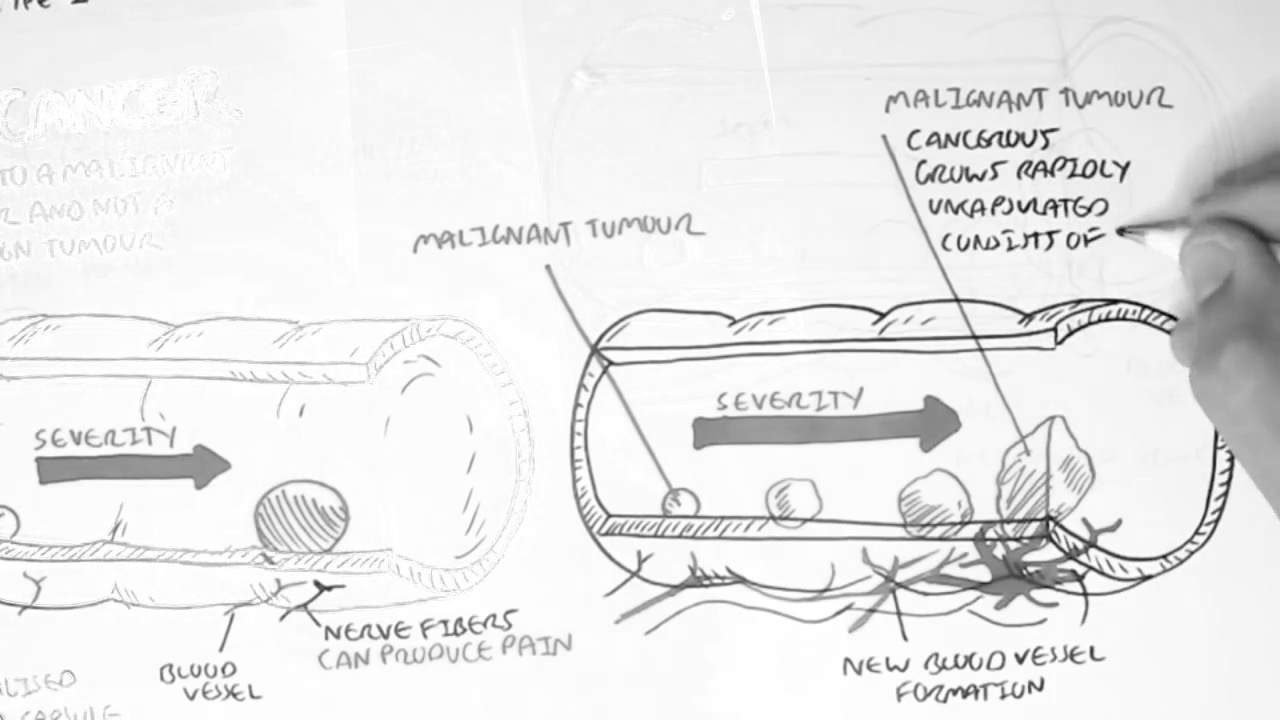 CANCER
TO A MALIGNANT
AND NOT A
TUMOUR
SEVERITY
BLOOD
VESSEL
NERVE FIBERS
CAN PRODUCE PAIN
MALIGNANT TUMOUR
SEVERITY
MALIGNANT TUMOUR
CANCEROUS
GROWS RAPIDLY
UNCAPSULATED
CONSISTS OF
NEW BLOOD VESSEL
FORMATION